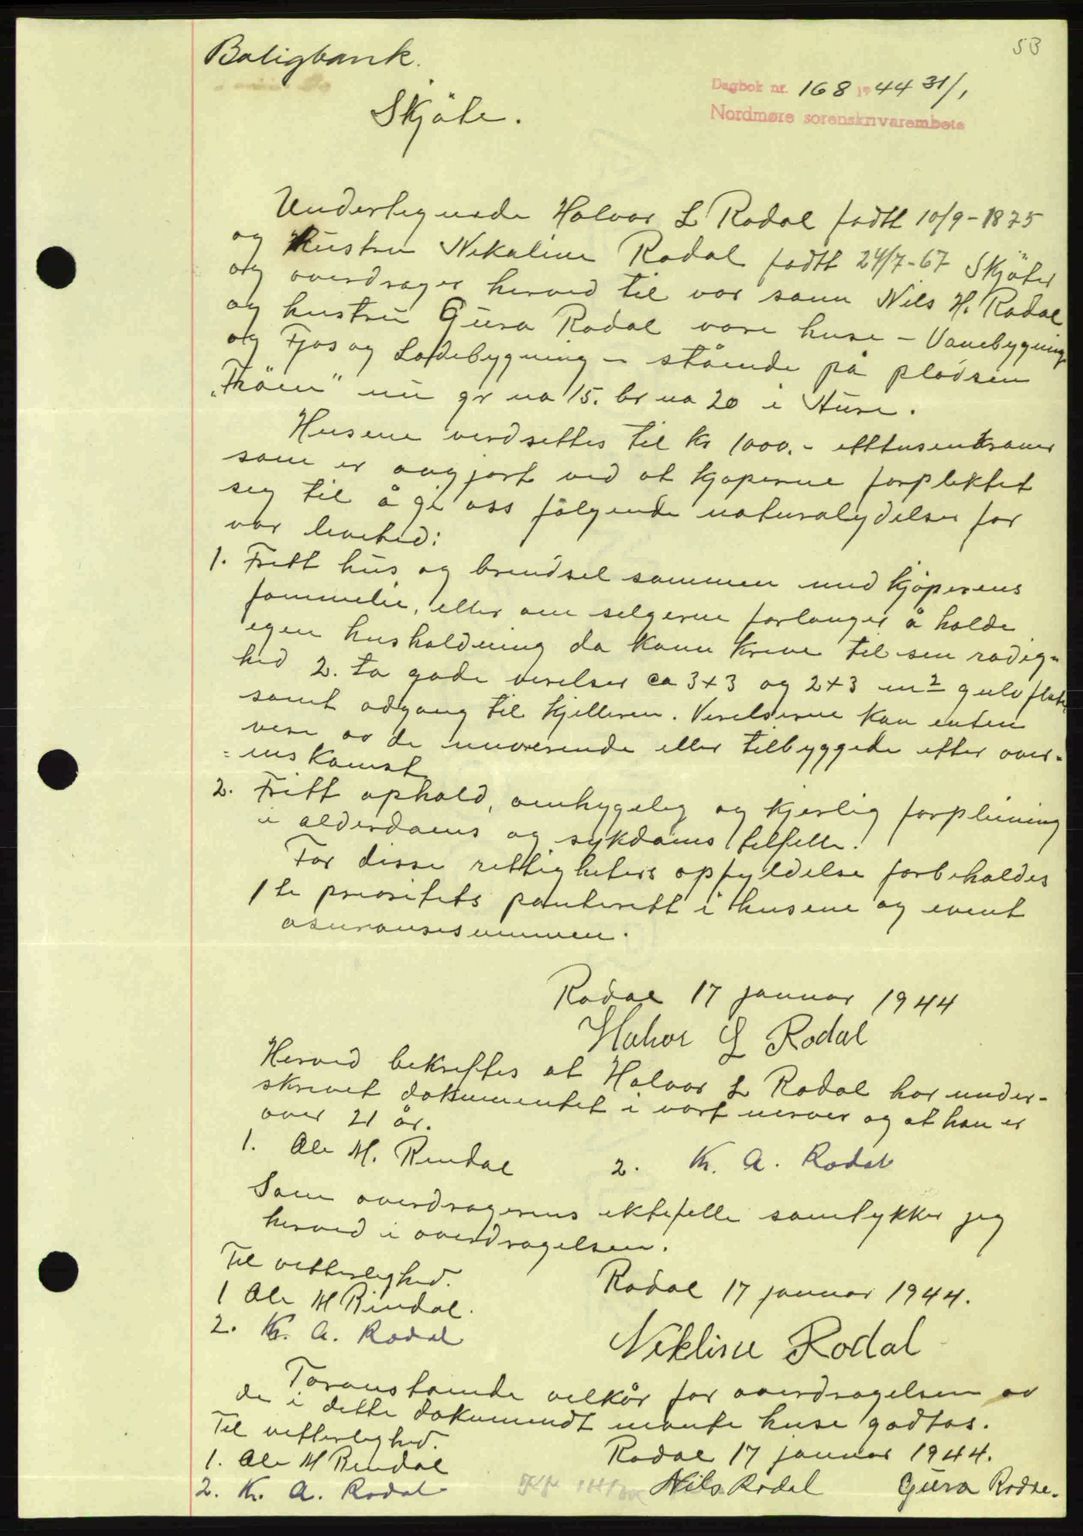 53
Boligbank.
Dagbok nr. 168 1944 31/1
Nordmøre sorenskrivarembete
Skjöte.
Undertegnede Halvor L Rodal fødtt 10/9-1875
og Hustru Nekoline Rodal fødtt 24/7-67 Skjöter
og overdrager herved til vor sønn Nils H. Rodal
og hustru Gura Rodal vore huse - Vonebygning
og Fjos og Ladebygning - stående på pladsen
"Fröen" nu gr no 15. br no 20 i Sture.
Husene verdsettes til kr 1000.- etttusenkroner
som er avgjort ved at kjøperne forpliktet
seg til å gi oss følgende naturalydelser for
vor levetid:
1. Fritt hus og brendsel sammen med kjøperens
fammelie, eller om selgerne forlanger å holde
egen husholdning da kann kreve til sin rådig-
hed 2. to gode verelser ca 3x3 og 2x3 m² gulvflate
samt adgang til kjelleren. Verelserne kan enten
vere av de nuverende eller tilbyggede efter over-
=ens komst
2. Fritt ophold, omhygelig og kjerlig forpleining
i alderdoms og sykdoms tilfelle.
For disse rettigheters opfyldelse forbeholdes
1ste prioritets panterett i husene og event
asuransesummen.
Rodal 17 januar 1944
Halvor L Rodal
Herved bekreftes at Halvor L Rodal har under-
skrevet dokumentet i vort nerver og at han er
over 21 år.
1. Ole M. Rindal 2. Kr. A. Rodal
Som overdragerens ektefelle samtykker jeg
herved i overdragelsen.
Til vitterlighed.
Rodal 17 januar 1944.
1 Ole M Rindal.
2. Kr. A. Rodal
Nekline Rodal
Foranstående velkår for overdragelsen av
de i dette dokumendt nevnte huse godtas.
Til vitterlighed.
Rodal 17 januar 1944.
1. Ole M Rindal
2. Kr. A. Rodal Nils Rodal Gura Rodal.